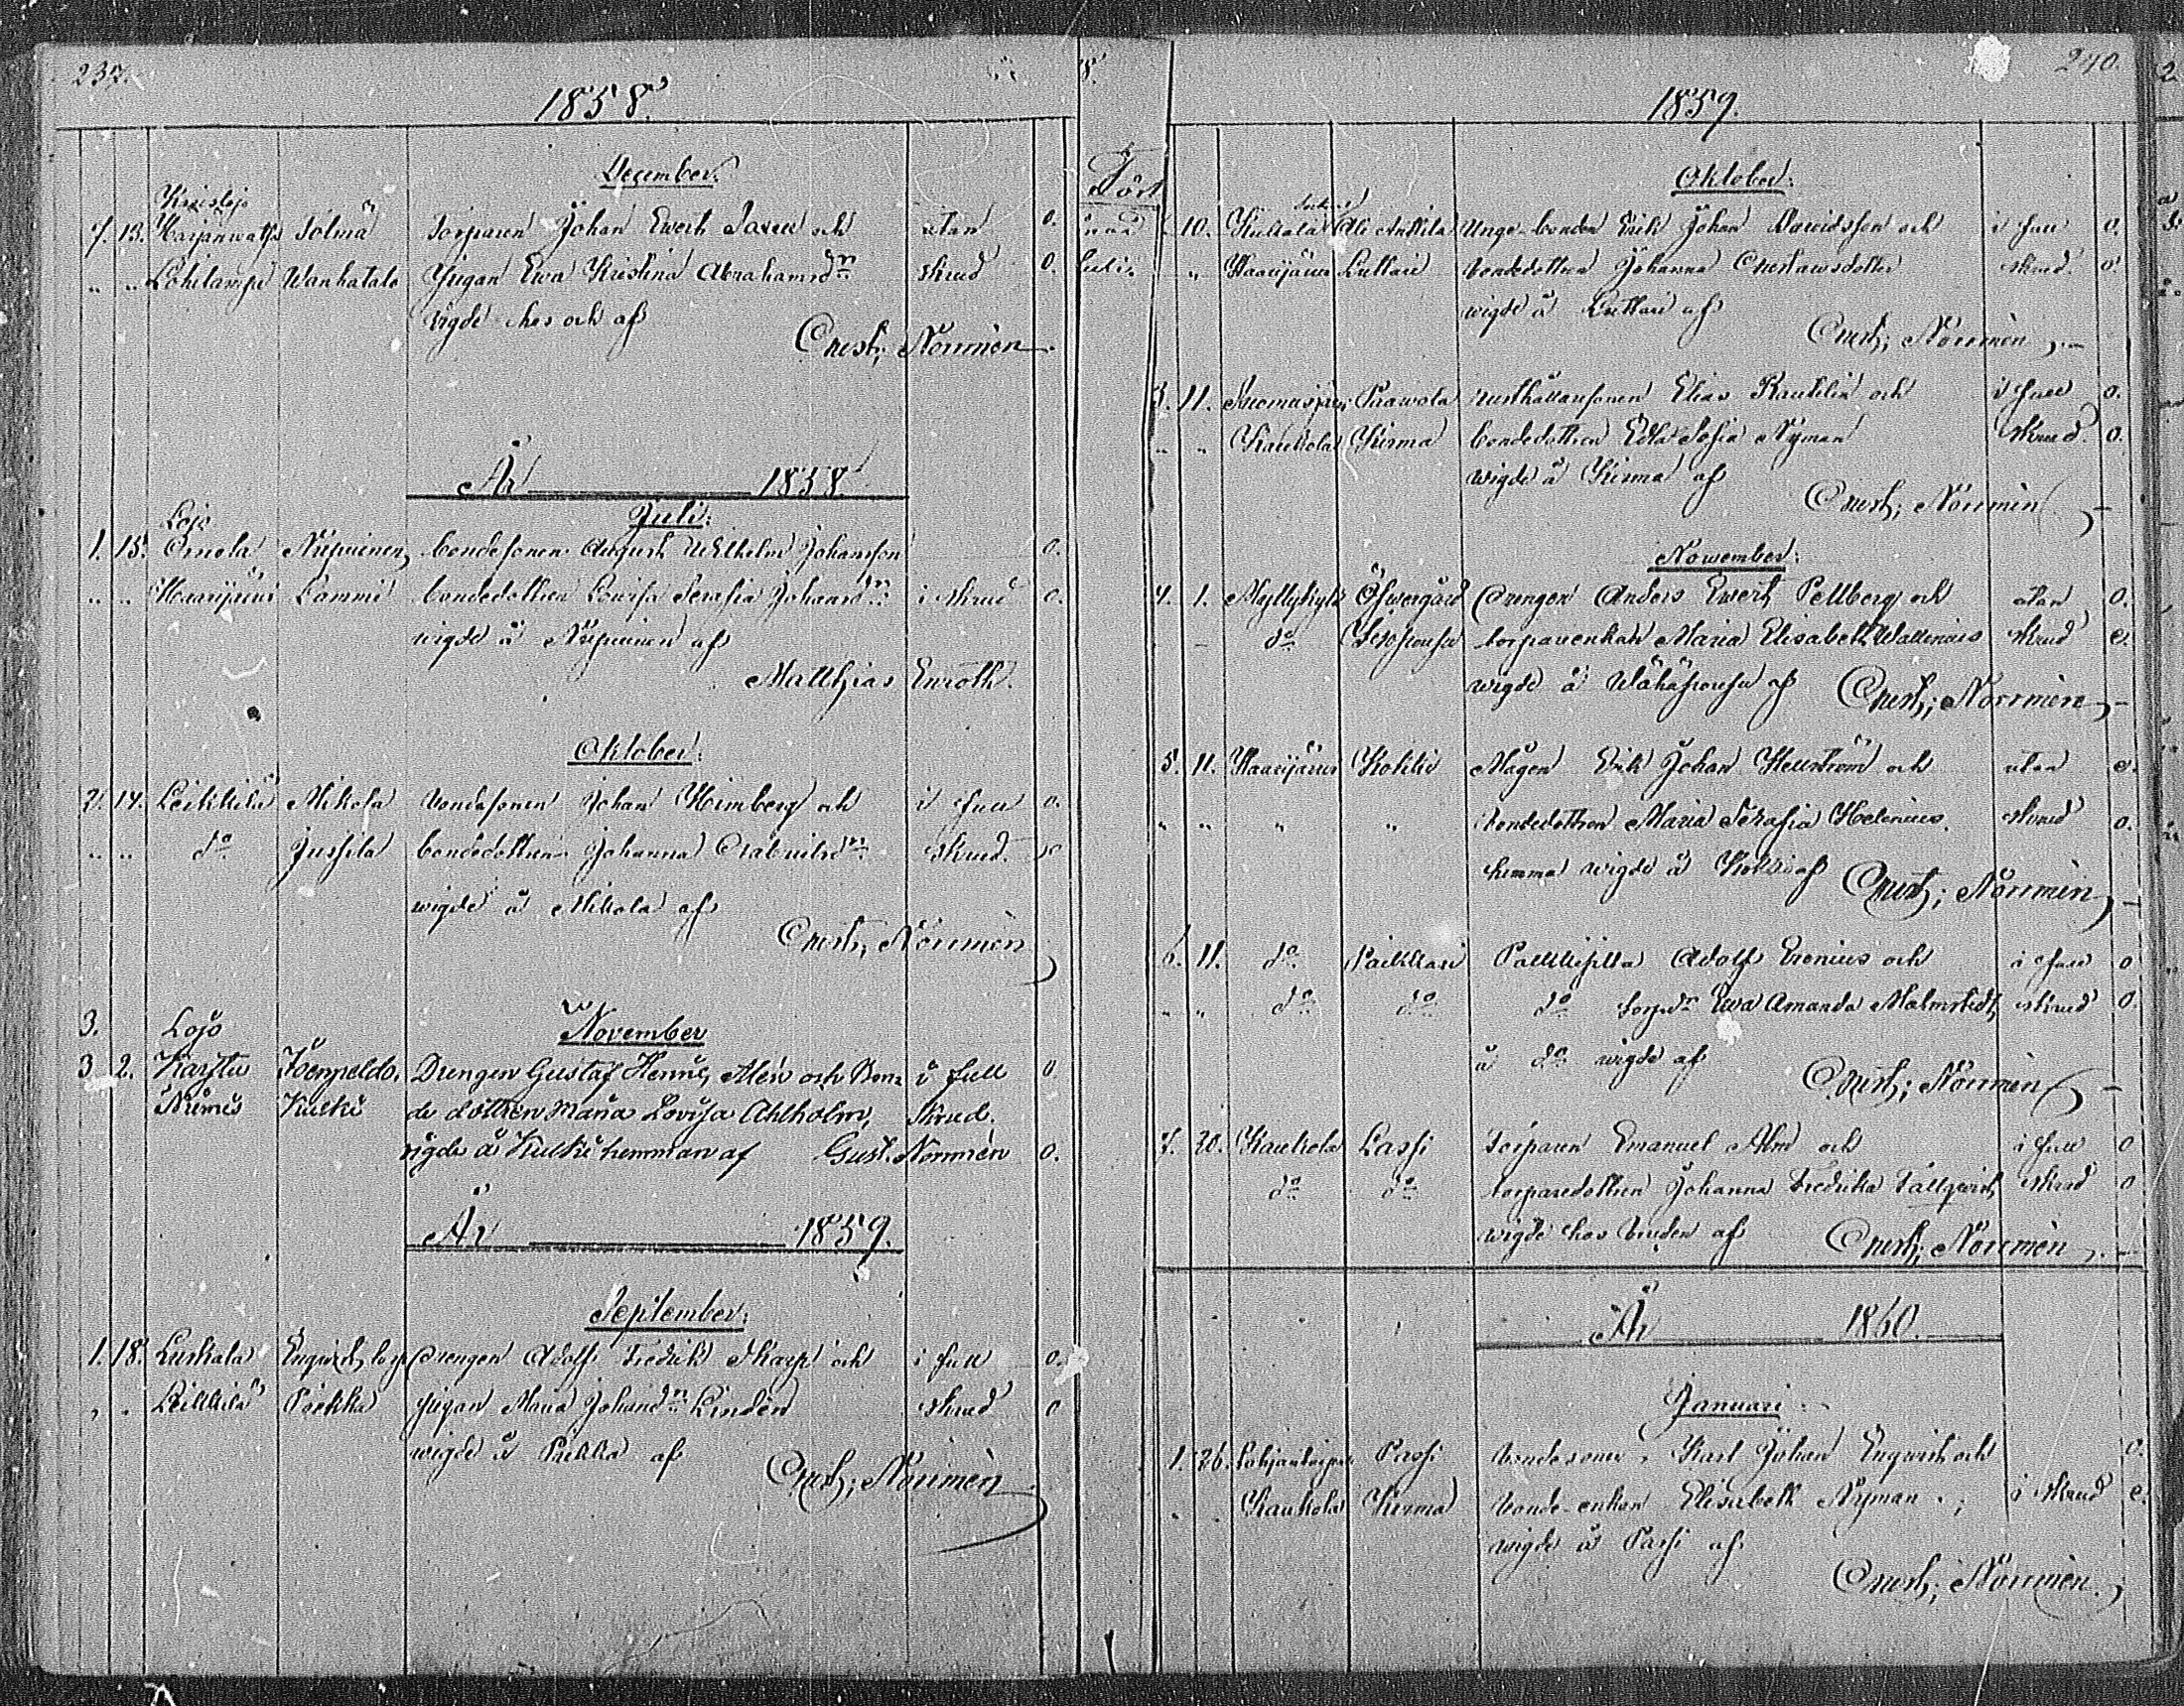 239.
1858.
December.
Karislojo
7. 13. Harjanwatsa Solmä Torparen Johan Ewert Saxen och utan 0.
" " Lohilampi Wanhatalo Pigan Ewa Kristina Abrahamsdn skrud 0.
vigde hos och af
Gust; Norrmén
År 1858.
Juli.
Lojo
1. 15. Outola Nipuinen bondesonen August Wilhelm Johansson 0.
" " Haarijärvi Lammi bondedottren Lovisa Serafia Johansdn i skrud 0.
wigde å Nipuinen af
Matthias Enroth.
Oktober.
2. 14. Leikkilä Mikola bondesonen Johan Heimberg och i full 0.
" " do Jussila bondedottren Johanna Gabrielsdn skrud.
wigde å Mikola af
Gust; Norrmén
3. Lojo November
3 2. Karstu Drengen Gustaf Henric Alén och Bon= i full 0
Nümes Kulki de dottren Maria Lovisa Ahlholm, skrud.
vigde å Kulki hemman af Gust. Norrmén 0.
År 1859.
September.
1. 18. Luskala Engwist torp Drengen Adolf Fredrik Skarp och i full 0.
" " Leikkilä Prekka pigan Maria Johansdn Lindén skrud 0
wigde å Prekka af
Gust; Norrmén
240.
1859.
Oktober.
10. Ali Anttila Unge-bonden Erik Johan Dawidsson och i full 0.
" Haarijärvi Luttari bondedottren Johanna Gustawsdotter skrud. 0.
wigde å Luttari af
Gust; Norrmén
3. 11. Suomusjärvi Paawola rusthållarsonen Elias Rautelin och i full 0.
" " Kaukola Kirma bondedottren Edla Sofia Nyman skrud. 0.
wigde å Kirma af
Gust; Norrmén
Nowember.
4. 1. Myllykylä Öfwergård Drengen Anders Ewert Pellberg och utan 0.
do torpareenkan Maria Elisabeth Wallenius skrud 0.
wigde å Wähäpousu af Gust; Norrmén
5. 11. Haarijärvi Kokki Mågen Erik Johan Hellström och utan 0.
" " " " bondedottren Maria Serafia Helenius. skrud 0.
hemma wigde å Kokki af Gust; Norrmén
6. 11. do Paikkari Adolf Grenius och i full 0
" " do do do torpdn Ewa Amanda Malmstedt skrud 0.
å do wigde af
Gust; Norrmén
7. 20. Kaukola Lassi Torparen Emanuel Alm och i full 0
do do torparedottren Johanna Fredrika Tallqwist skrud 0
wigde hos bruden af Gust; Norrmén
År 1860.
Januari.
1. 26. Passi bondesonen Karl Johan Engwist och 0.
" Kaukola Kirma bonde-enkan Elisabeth Nyman i skrud 0.
wigde å Passi af
Gust; Norrmén.